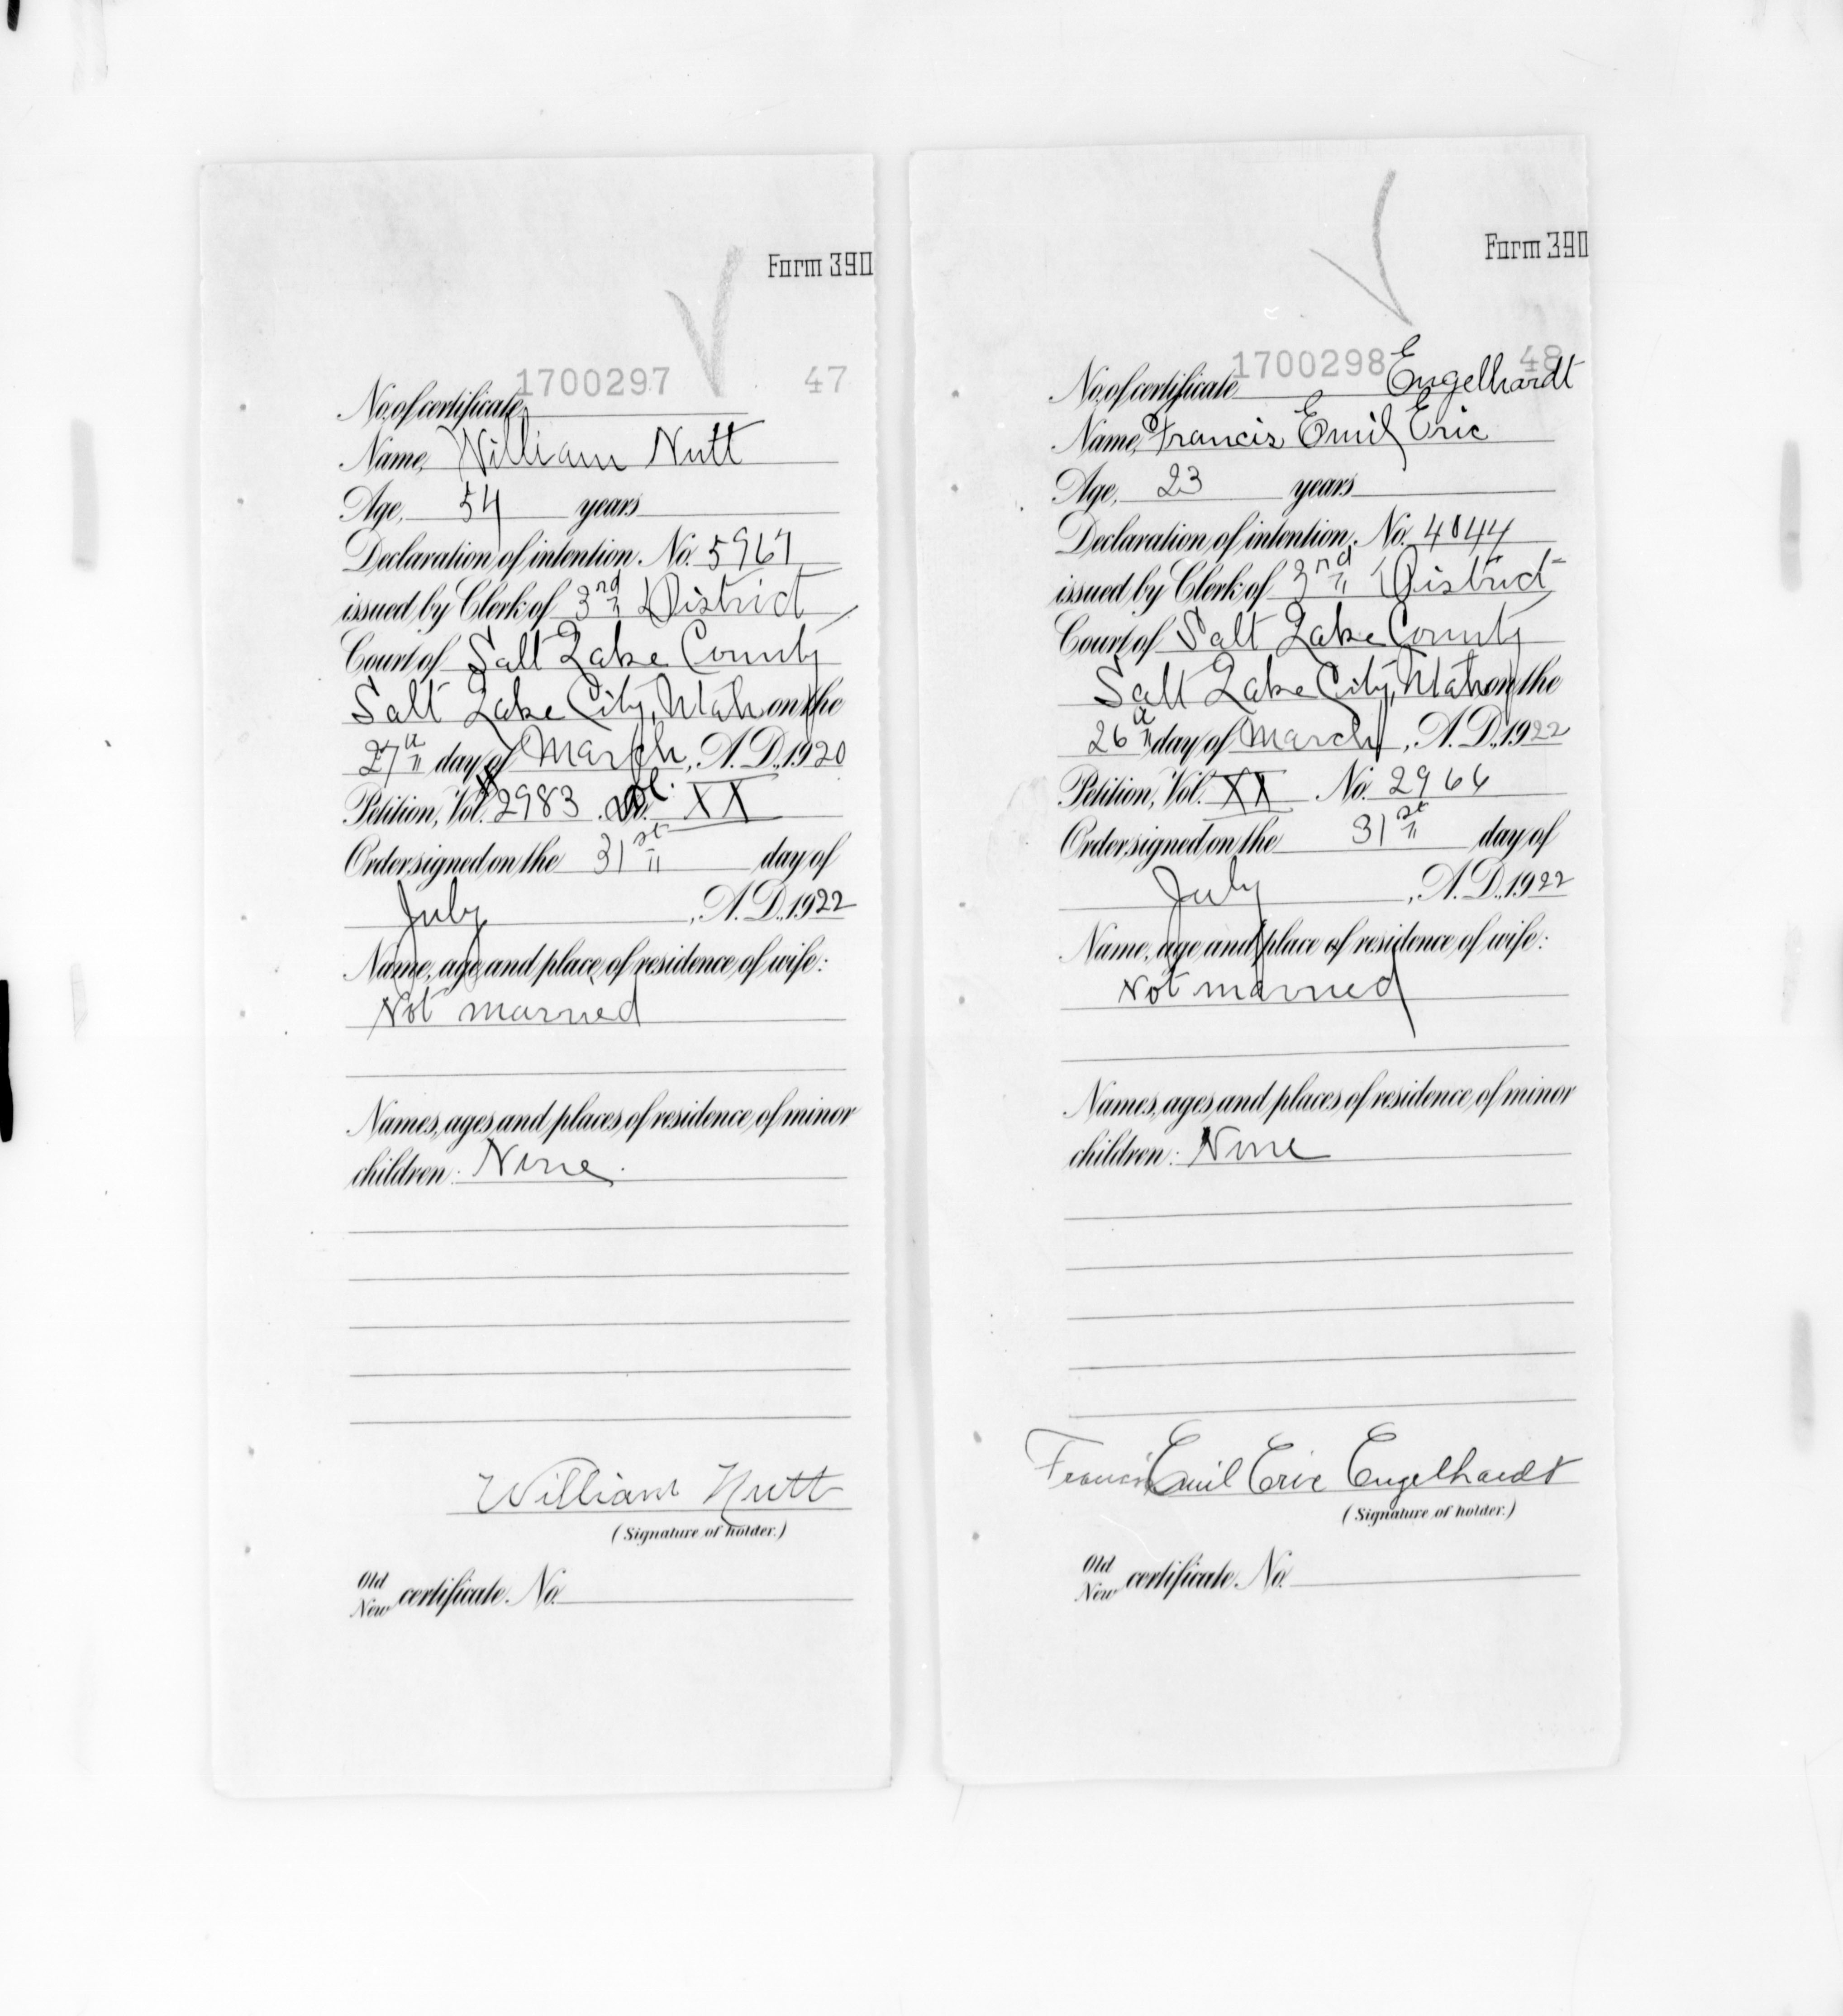 Form 390
1700297 47
No. of certificate,
Name, William Nutt
Age, 54 years
Declaration of intention, No. 5967
issued by Clerk of 3rd District
Court of Salt Lake County
Salt Lake City, Utah on the
27th day of March, A.D., 1920
Petition, Vol. 2983 Vol. XX
Order signed on the 31st day of
July, A.D., 1922
Name, age and place of residence of wife:
Not married
Names, ages and places of residence of minor
children: None.
William Nutt
(Signature of holder.)
Old
New certificate No.
Form 390
1700298 48
No. of certificate Engelhardt
Name, Francis Emil Eric
Age, 23 years
Declaration of intention, No. 4044
issued by Clerk of 3rd District
Court of Salt Lake County
Salt Lake City, Utah on the
26th day of March, A.D., 1922
Petition, Vol. XX No. 2966
Order signed on the 31st day of
July, A.D., 1922
Name, age and place of residence of wife:
Not married
Names, ages and places of residence of minor
children: None
Francis Emil Eric Engelhardt
(Signature of holder.)
Old
New certificate No.